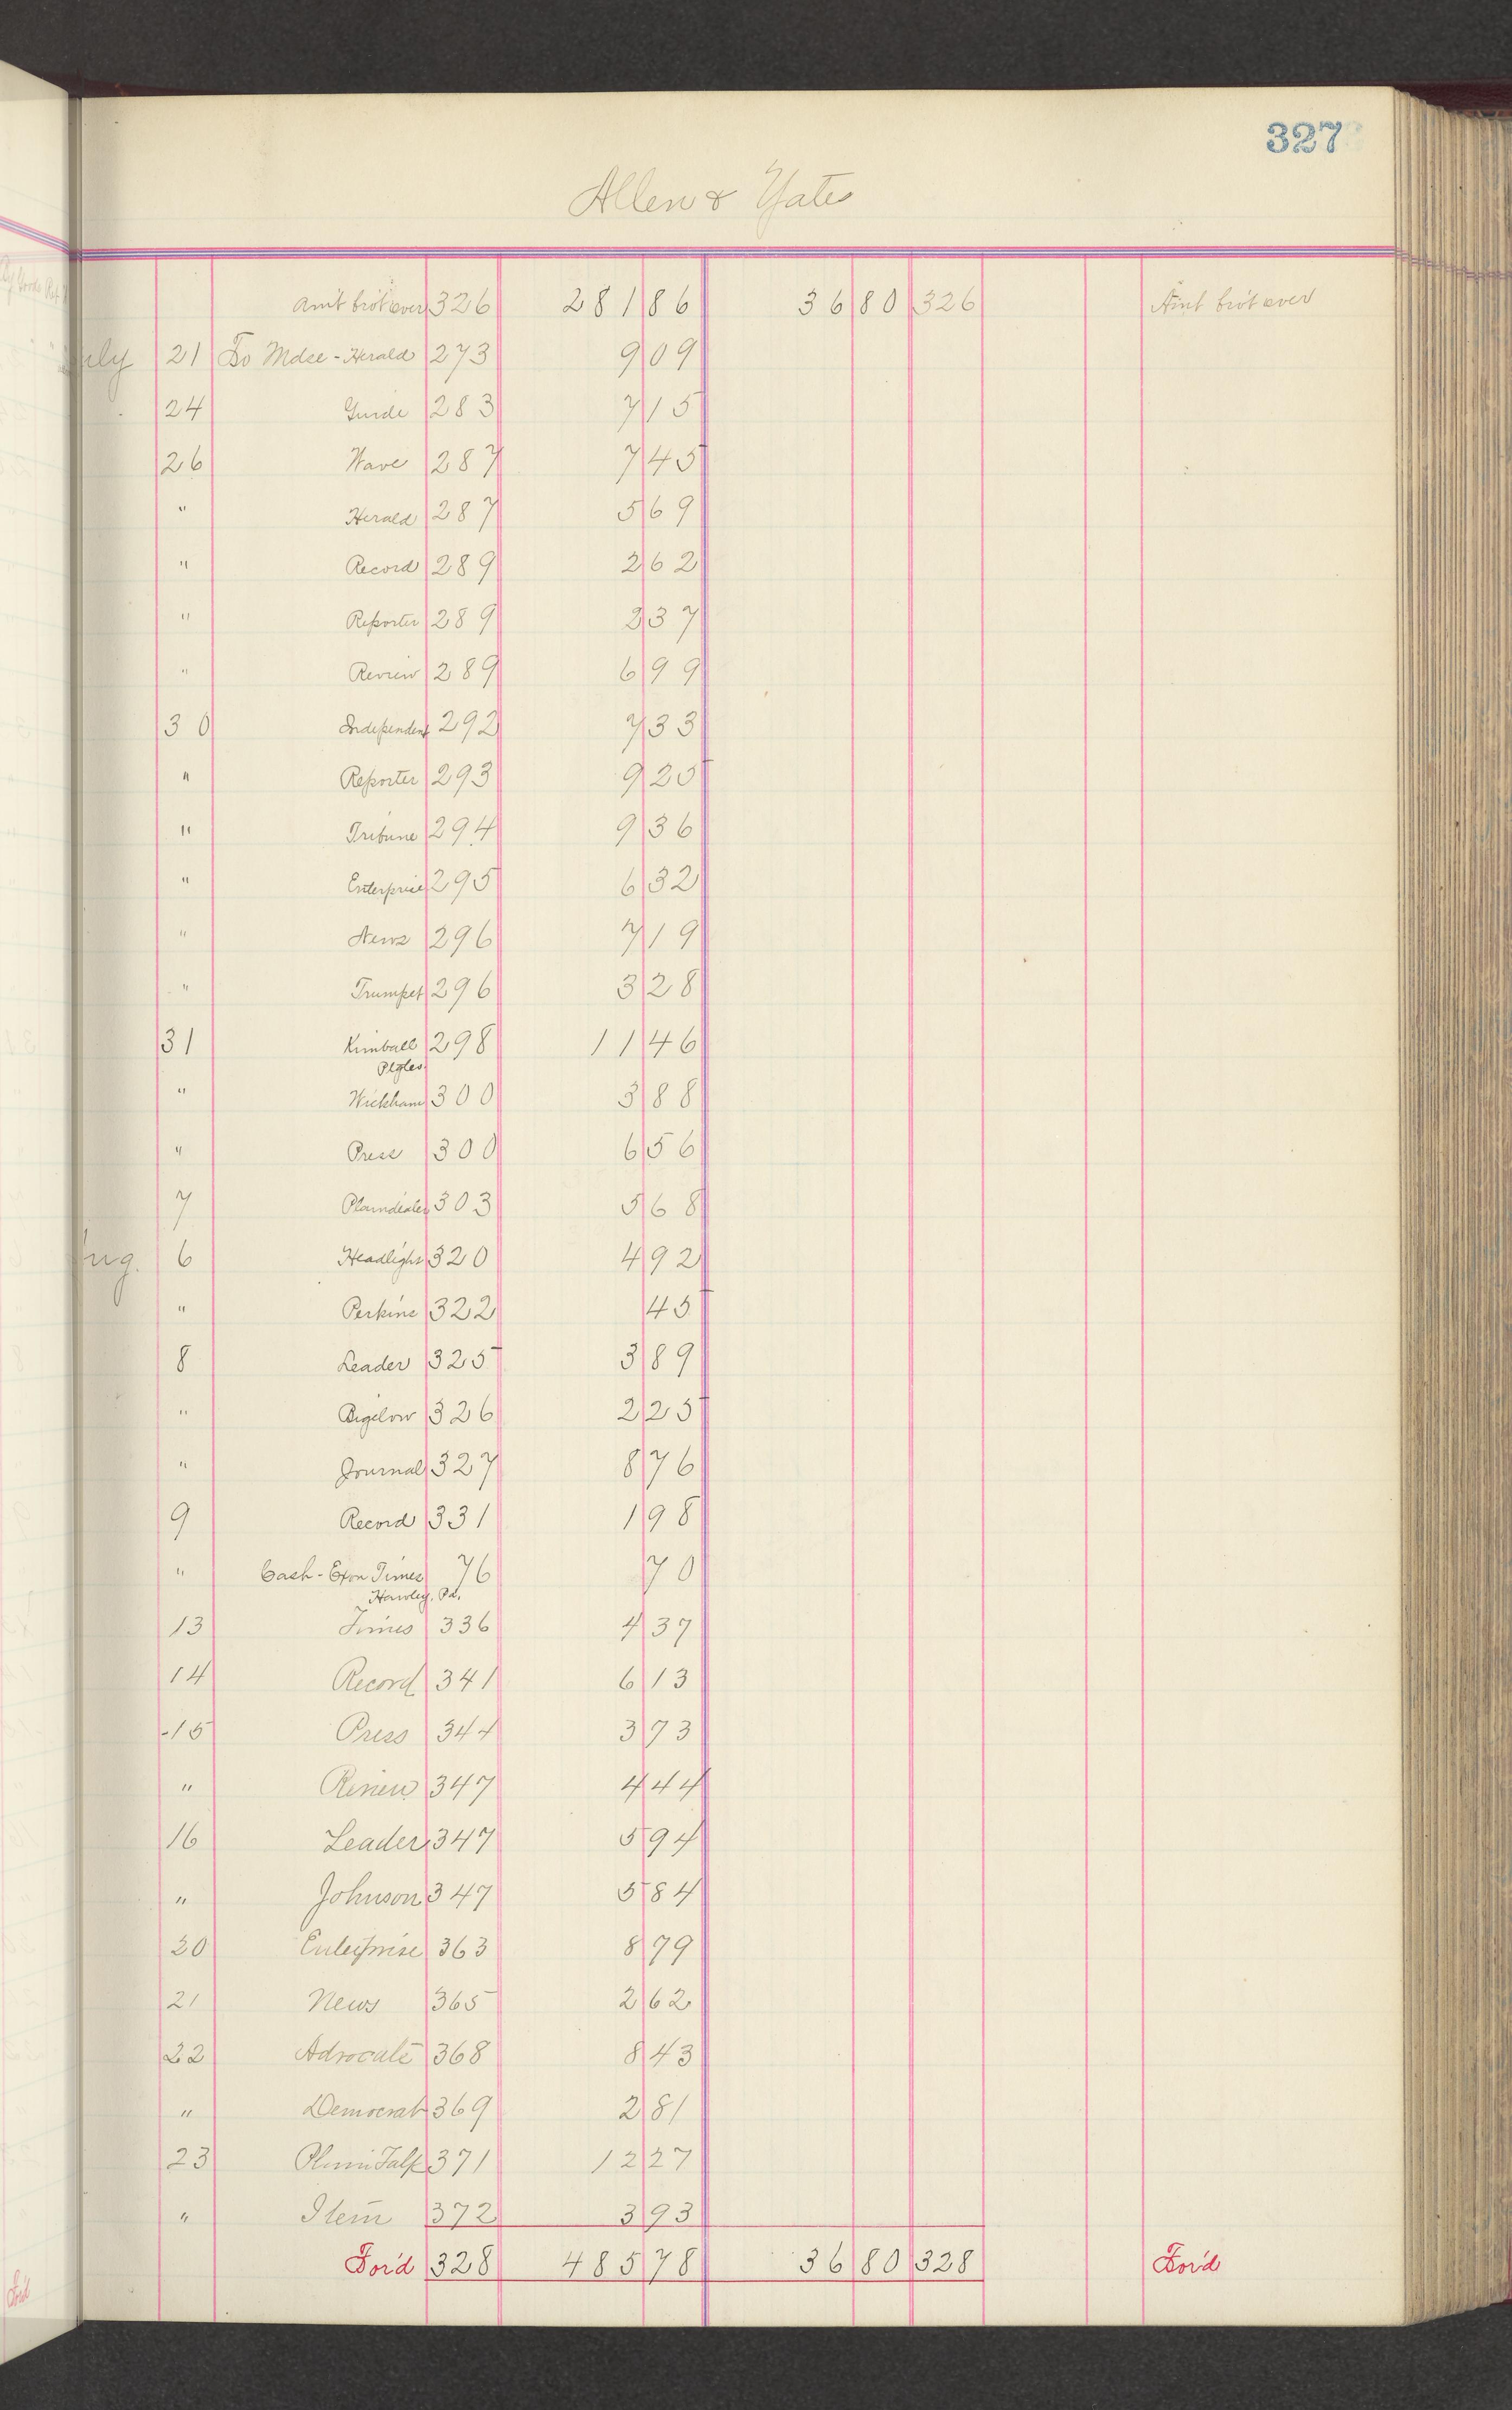 327
Allen & Yates
Am't bro't over 326 281 86 36 80 326 Am't bro't over
21 To Mdse - Herald 273 9 09
24 Guide 283 7 15
26 Wave 287 7 45
" Herald 287 5 69
" Record 289 2 62
" Reporter 289 2 37
" Review 289 6 99
30 Independent 292 7 33
" Reporter 293 9 25
" Tribune 294 9 36
" Enterprise 295 6 32
" News 296 7 19
" Trumpet 296 3 28
31 Kimball 298 11 46
" Wickham 300 3 88
" Press 300 6 56
7 Plaindealer 303 5 68
Aug. 6 Headlight 320 4 92
" Perkins 322 45
8 Leader 325 3 89
" Bigelow 326 2 25
" Journal 327 8 76
9 Record 331 1 98
" Cash - Exon Times 76 70
Hawley, Pa.
13 Times 336 4 37
14 Record 341 6 13
15 Press 344 3 73
" Review 347 4 44
16 Leader 347 5 94
" Johnson 347 5 84
20 Enterprise 363 8 79
21 News 365 2 62
22 Advocate 368 8 43
" Democrat 369 2 81
23 371 12 27
" Item 372 3 93
For'd 328 485 78 36 80 328 For'd